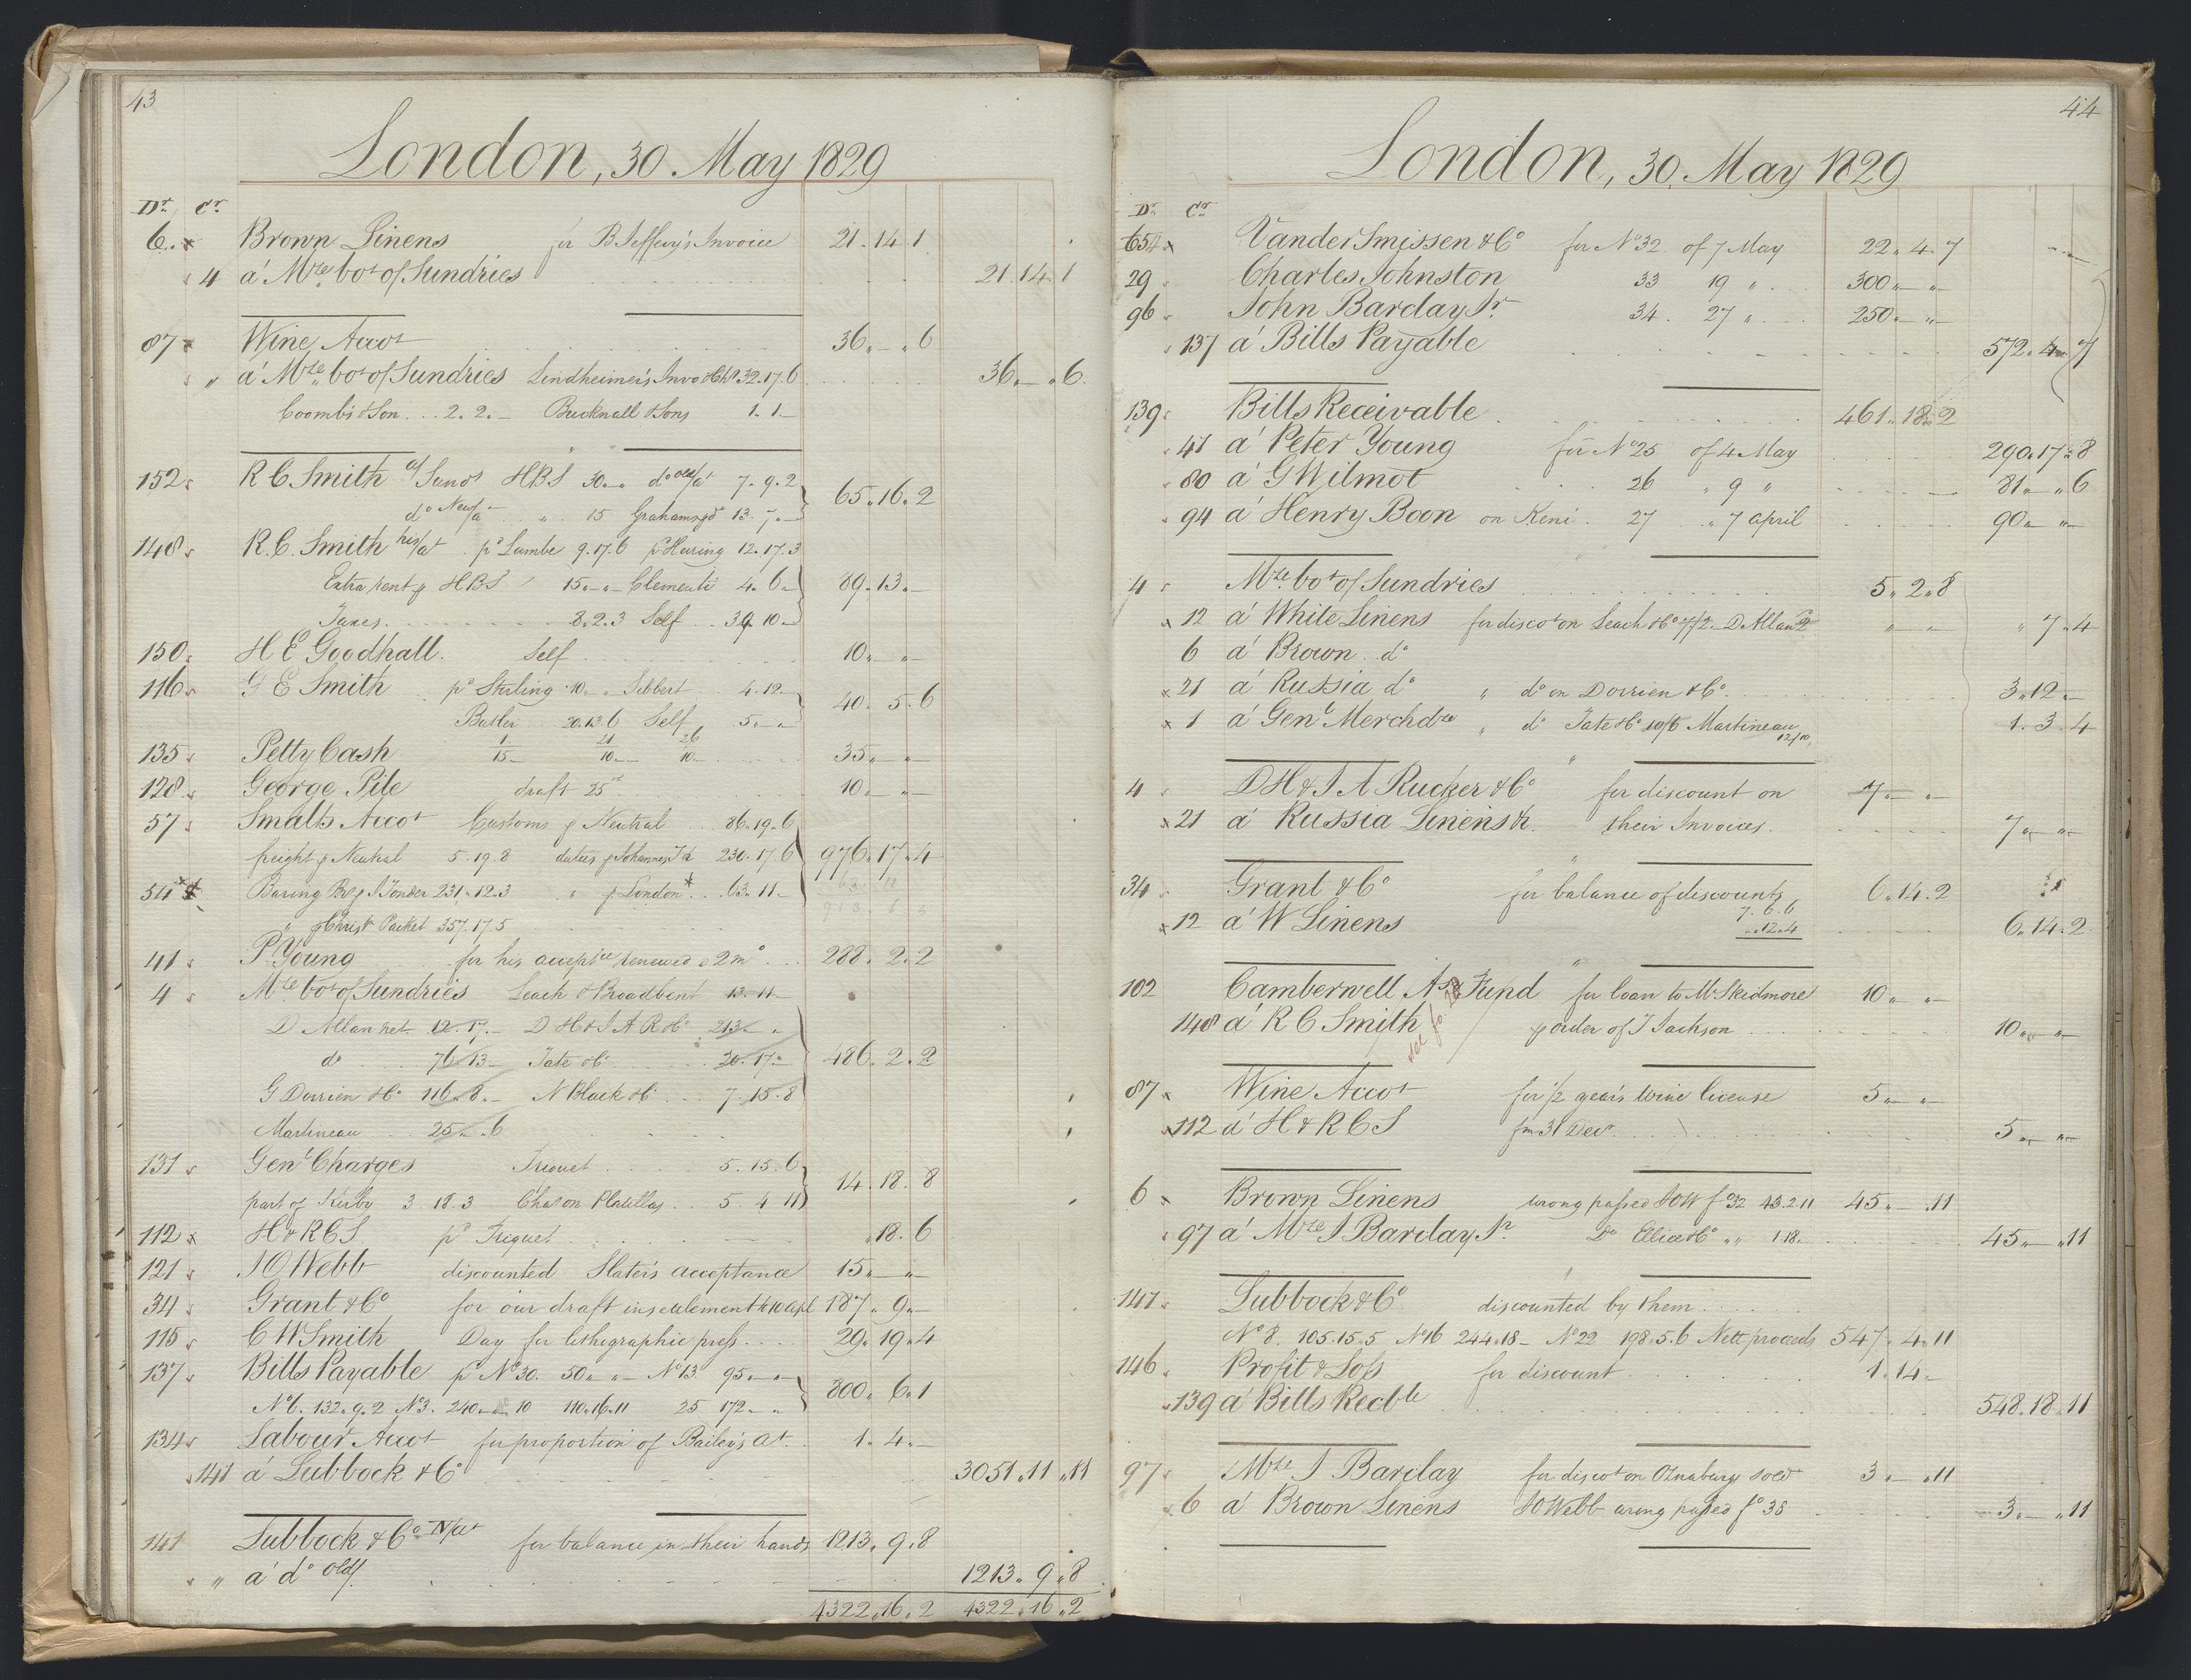 43
London, 30 May 1829
Dr. Cr.
6 Brown Linens for B Jeffery's Invoice 21.14.1
4 a' Mdze bot of Sundries 21.14.1
87 Wine Accot 36.—.6
" a' Mdze bot of Sundries Lindheimer's Invo & Chs 32.17.6 36.—.6
Coombs & Son 2.2.— Bucknall & Sons 1.1—
152 R C Smith a/ Sunds HBS 30.. do old/at 7.9.2 65.16.2
do New/a " 15 Grahams 13.7.—
148 R.C. Smith his/at pd Lambe 9.17.6 12.17.3
Extra rent HBS 15.. Clementi 4.6.— 89.13.—
Taxes 8.2.3 Self 39.10—
150 H E Goodhall. Self 10..—
116 G E Smith pd Sterling 10.. Sibbert 4.12— 40.5.6
Butler 20.13.6 Self 5.—
1 21 26
135 Petty Cash 15— 10— 10— 35..—
128 George Pile draft 25 10..—
57 Smalts Accot Customs p Neutral 86.19.6
freight p Neutral 5.19.8 duties p Johannes 230.17.6 976.17.4
54 Baring Br p J Yonder 231.12.3 " p London * 63.11—
" p Christ Packet 357.17.5
41 P. Young for his accept'ce renewed 2 mo 288.2.2
4 Mdze bot of Sundries Leach & Broadbent 13.11—
D Allan net 12.17.— D H & J A R & Co 213—.
do 76.13— Tate & Co 20.17— 486.2.2
G Dorrien & Co 116.8.— N Black & Co 7.15.8
Martineau 25..6
131 Genl Charges Triquet 5.15.6
part of Kirby 3.18.3 Chas on Platillas 5.4.11 14.18.8
112 H & R C S pd Triquet .18.6
121 J O Webb discounted Slater's acceptance 15..—
34 Grant & Co for our draft in settlement to 10 Apl 187.9—
115 C W Smith Day for lithographic press 29.19.4
137 Bills Payable pd No 30. 50.. — No 13. 95.— 800.6.1
No 6. 132.9.2 No 3. 240.— 10 110.16.11 25 172—.
134 Labour Accot for proportion of Bailey's at. 1.4.—
141 a' Lubbock & Co 3051.11.11
141 Lubbock & Co N/at for balance in their hands 1213.9.8
" a' do old/ 1213.9.8
4322.16.2 4322.16.2
44
London, 30 May 1829
Dr. Cr.
654 VanderSmissen & Co for No 32 of 7 May 22.4.7
29 Charles Johnston 33 19 " 300..—
96 John Barclay Sr. 34. 27 " 250..—
137 a' Bills Payable 572.4.7
139 Bills Receivable 461.18.2
41 a' Peter Young for No 25 of 4 May 290.17.8
80 a' G Wilmot 26 " 9 " 81..6
94 a' Henry Boon on Keni. 27 " 7 april 90..—
4 Mdze bot of Sundries 5.2.8
12 a' White Linens for discot on Leach & Co D Allan .7.4
6 a' Brown do
21 a' Russia do " do on Dorrien & Co. 3.12.—
1 a' Genl Merchdze " do Tate & Co 10/6 Martineau 12/10 1.3.4
4 D H & J A Rucker & Co for discount on 7.—
21 a' Russia Linens &c. their Invoices. 7.—
34 Grant & Co for balance of discounts 6.14.2
7.6.6
12 a' W Linens ..12.4 6.14.2
102 Camberwell Asn Fund for loan to Mr Skidmore 10..—
148 a' R C Smith p order of J Jackson 10..—
see fo.
87 Wine Accot for 1/2 year's wine license 5..—
112 a' H & R C S fm 31 Decr. 5..—
6 Brown Linens wrong passed JOW fo 32 43.2.11 45.—.11
97 a' Mdze J Barclay Sr. Do Ellice & Co " " 1.18— 45.—.11
141 Lubbock & Co discounted by them
No 8. 105.15.5 No 16 244.18— No 22 198.5.6 Nett proceeds 547.4.11
146 Profit & Loss for discount 1.14.—
139 a' Bills Recble 548.18.11
97 Mdze J Barclay for discot on Oznaburg sold 3.—.11
6 a' Brown Linens J O Webb wrong passed fo 38 3.—.11